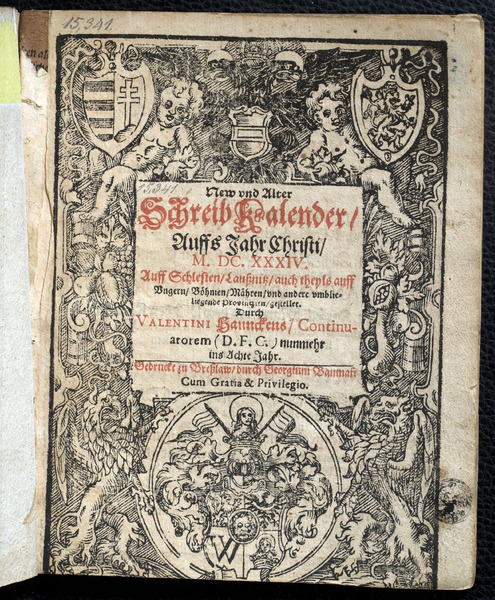 15,341.
15341.
New vnd Alter
Schreib Kalender/
Auffs Jahr Christi/
M. DC. XXXIV.
Auff Schlesien/ Laußnitz/ auch theyls auff
Vngern/ Böhmen/ Mähren/ vnd andere vmblie-
liegende Provintzien/ gestellet.
Durch
VALENTINI Haunckens/ Continu-
atorem (D. F. C.) nunmehr
ins Achte Jahr.
Gedruckt zu Breßlaw/ durch Georgium Bauman̄
Cum Gratia & Privilegio.
W